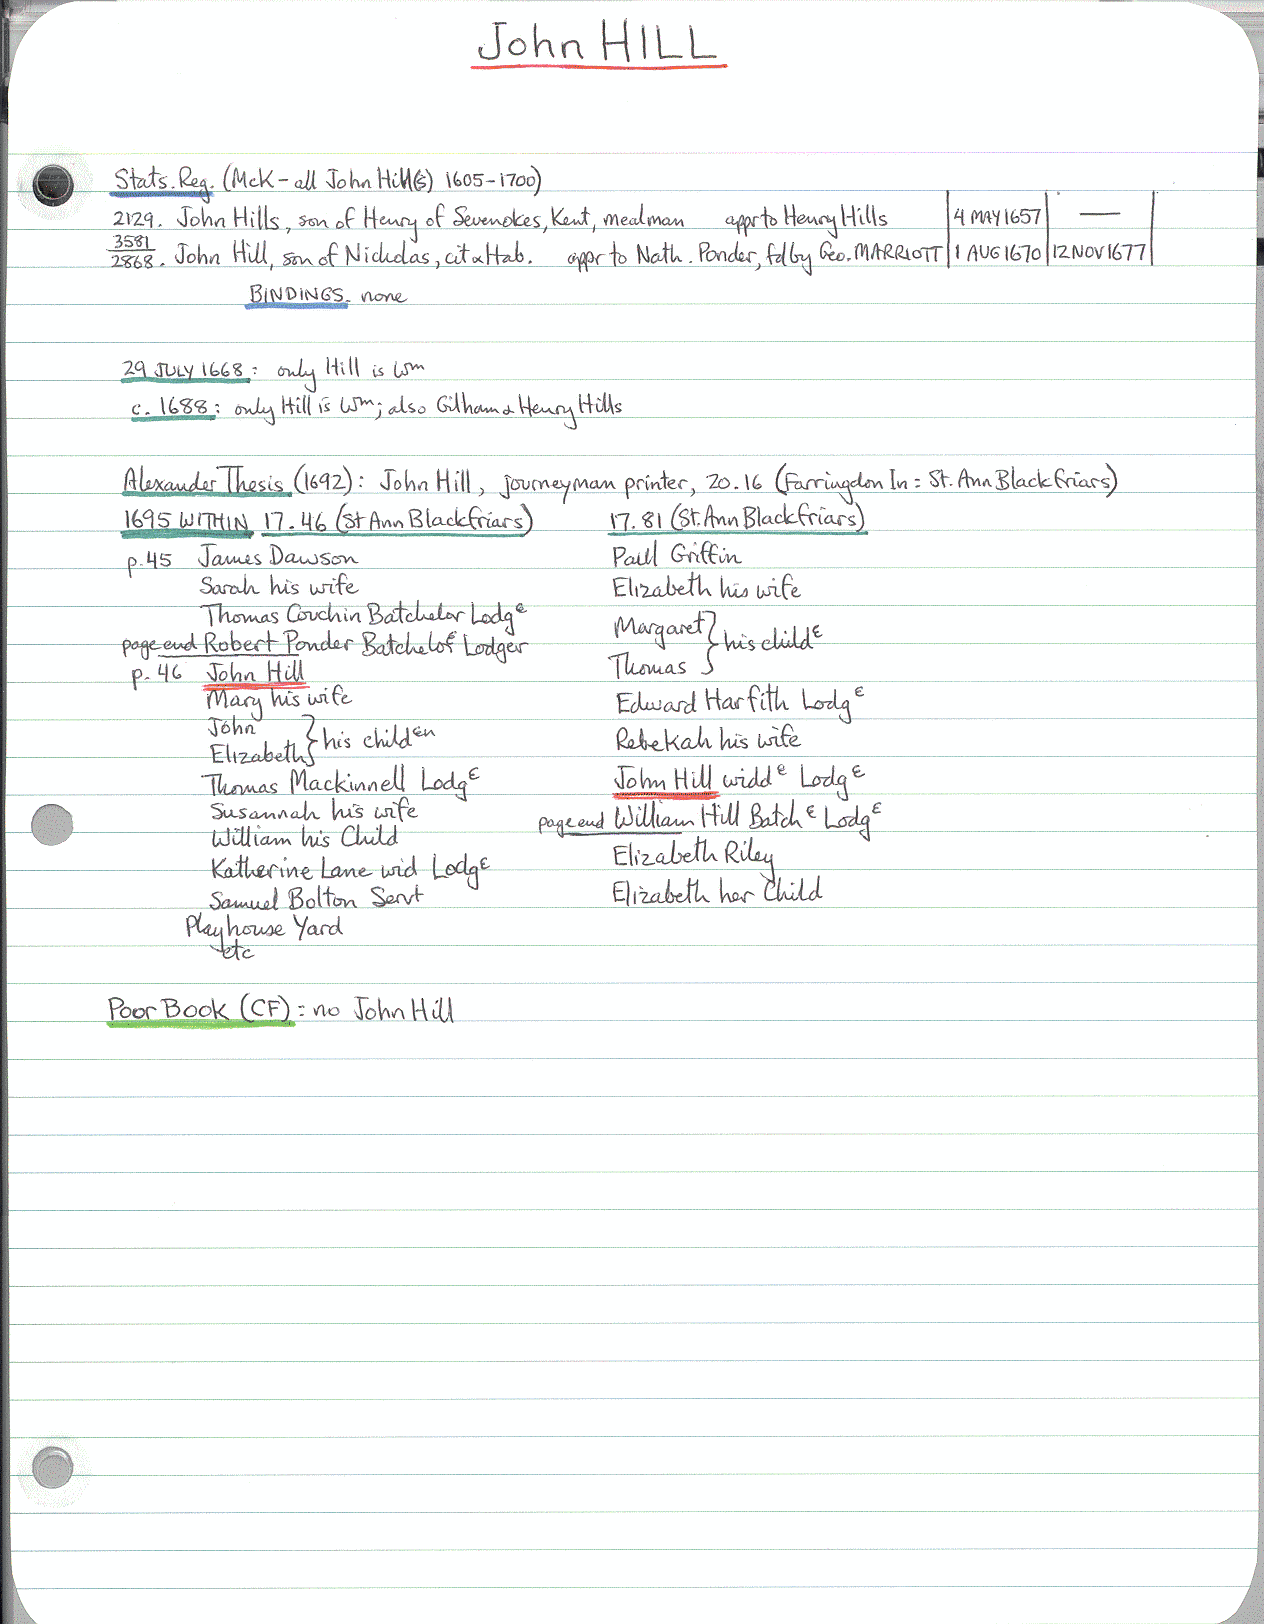 John HILL
Stats. Reg. (McK - all John Hill(s) 1605-1700)
2129. John Hills, son of Henry of Sevenokes, Kent, mealman appr to Henry Hills 4 MAY 1657 —
3581
2868. John Hill, son of Nicholas, cit & Hab. appr to Nath. Ponder, fd by Geo. MARRIOTT 1 AUG 1670 12 NOV 1677
BINDINGS. none
29 JULY 1668: only Hill is Wm
c. 1688: only Hill is Wm; also Gilham & Henry Hills
Alexander Thesis (1692): John Hill, journeyman printer, 20.16 (Farringdon In = St. Ann Blackfriars)
1695 WITHIN 17.46 (St Ann Blackfriars)
p.45 James Dawson
Sarah his wife
Thomas Couchin Batchelor Lodgᵉ
page end Robert Ponder Batchelor Lodger
p. 46 John Hill
Mary his wife
John
Elizabeth } his children
Thomas Mackinnell Lodgᵉ
Susannah his wife
William his Child
Katherine Lane wid Lodgᵉ
Samuel Bolton Servt
Playhouse Yard
etc
17.81 (St. Ann Blackfriars)
Paul Griffin
Elizabeth his wife
Margaret
Thomas } his childᵉ
Edward Harfith Lodgᵉ
Rebekah his wife
John Hill widdᵉ Lodgᵉ
page end William Hill Batchᵉ Lodgᵉ
Elizabeth Riley
Elizabeth her Child
Poor Book (CF): no John Hill